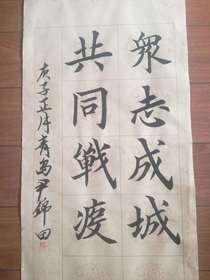 衆志成城
共同戰疫
庚子正月青島尹錦田